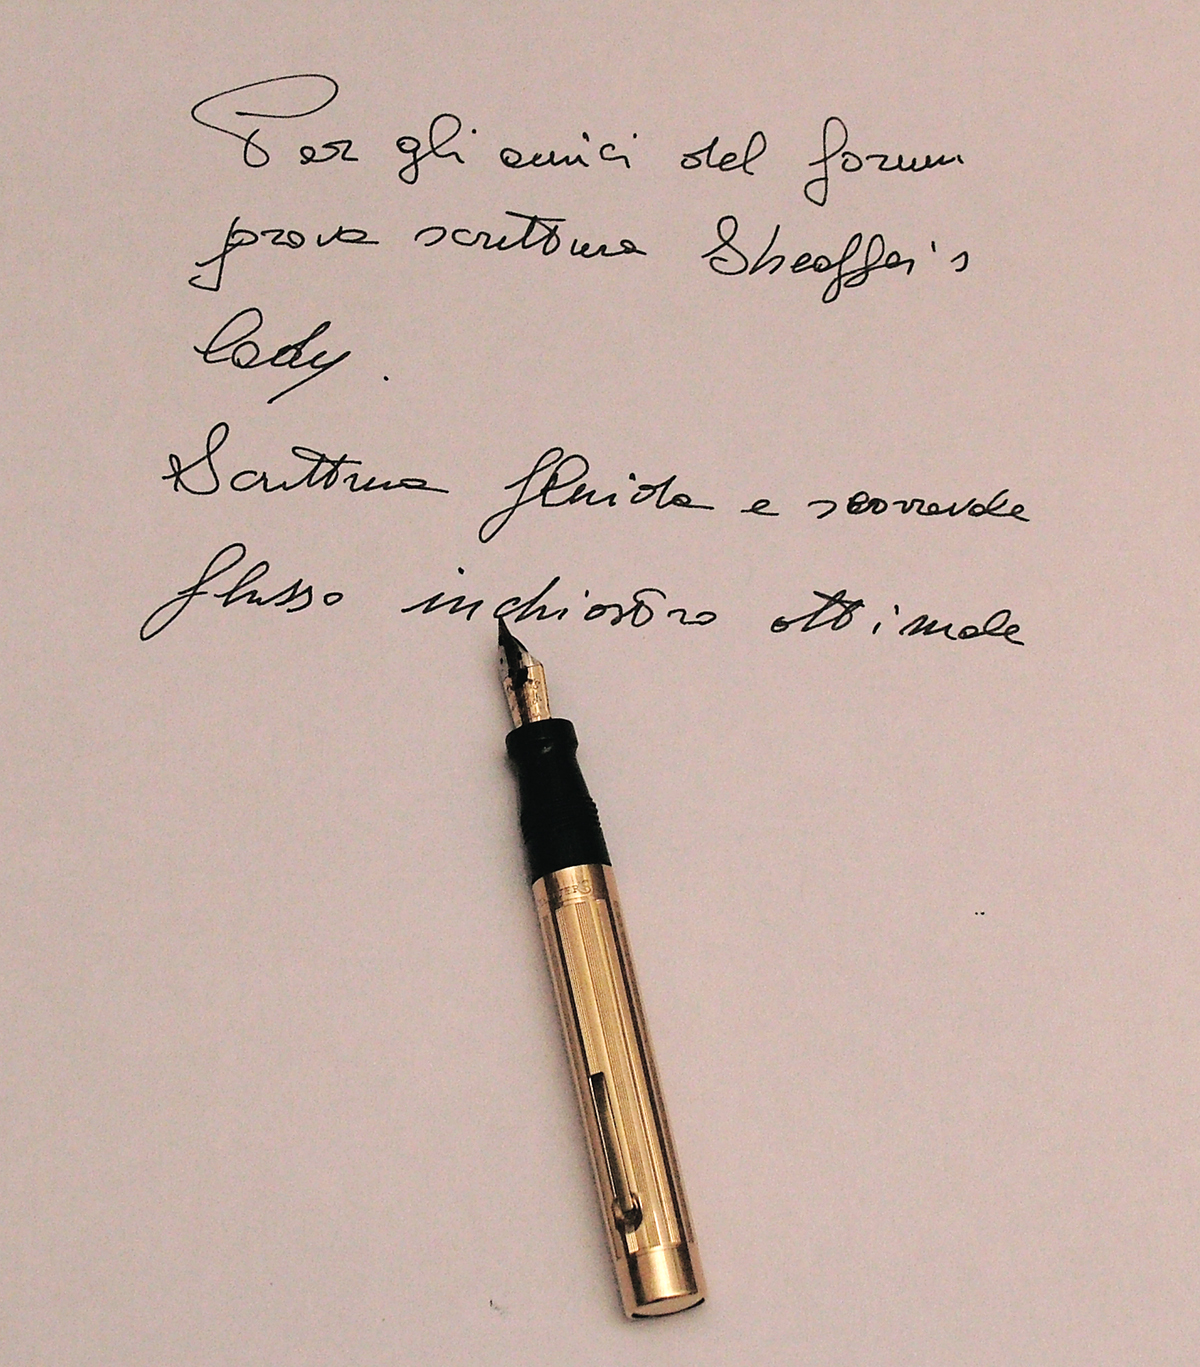 Per gli amici del forum
prova scrittura Sheaffer's
lady.
Scrittura fluida e scorrevole
flusso inchiostro ottimale